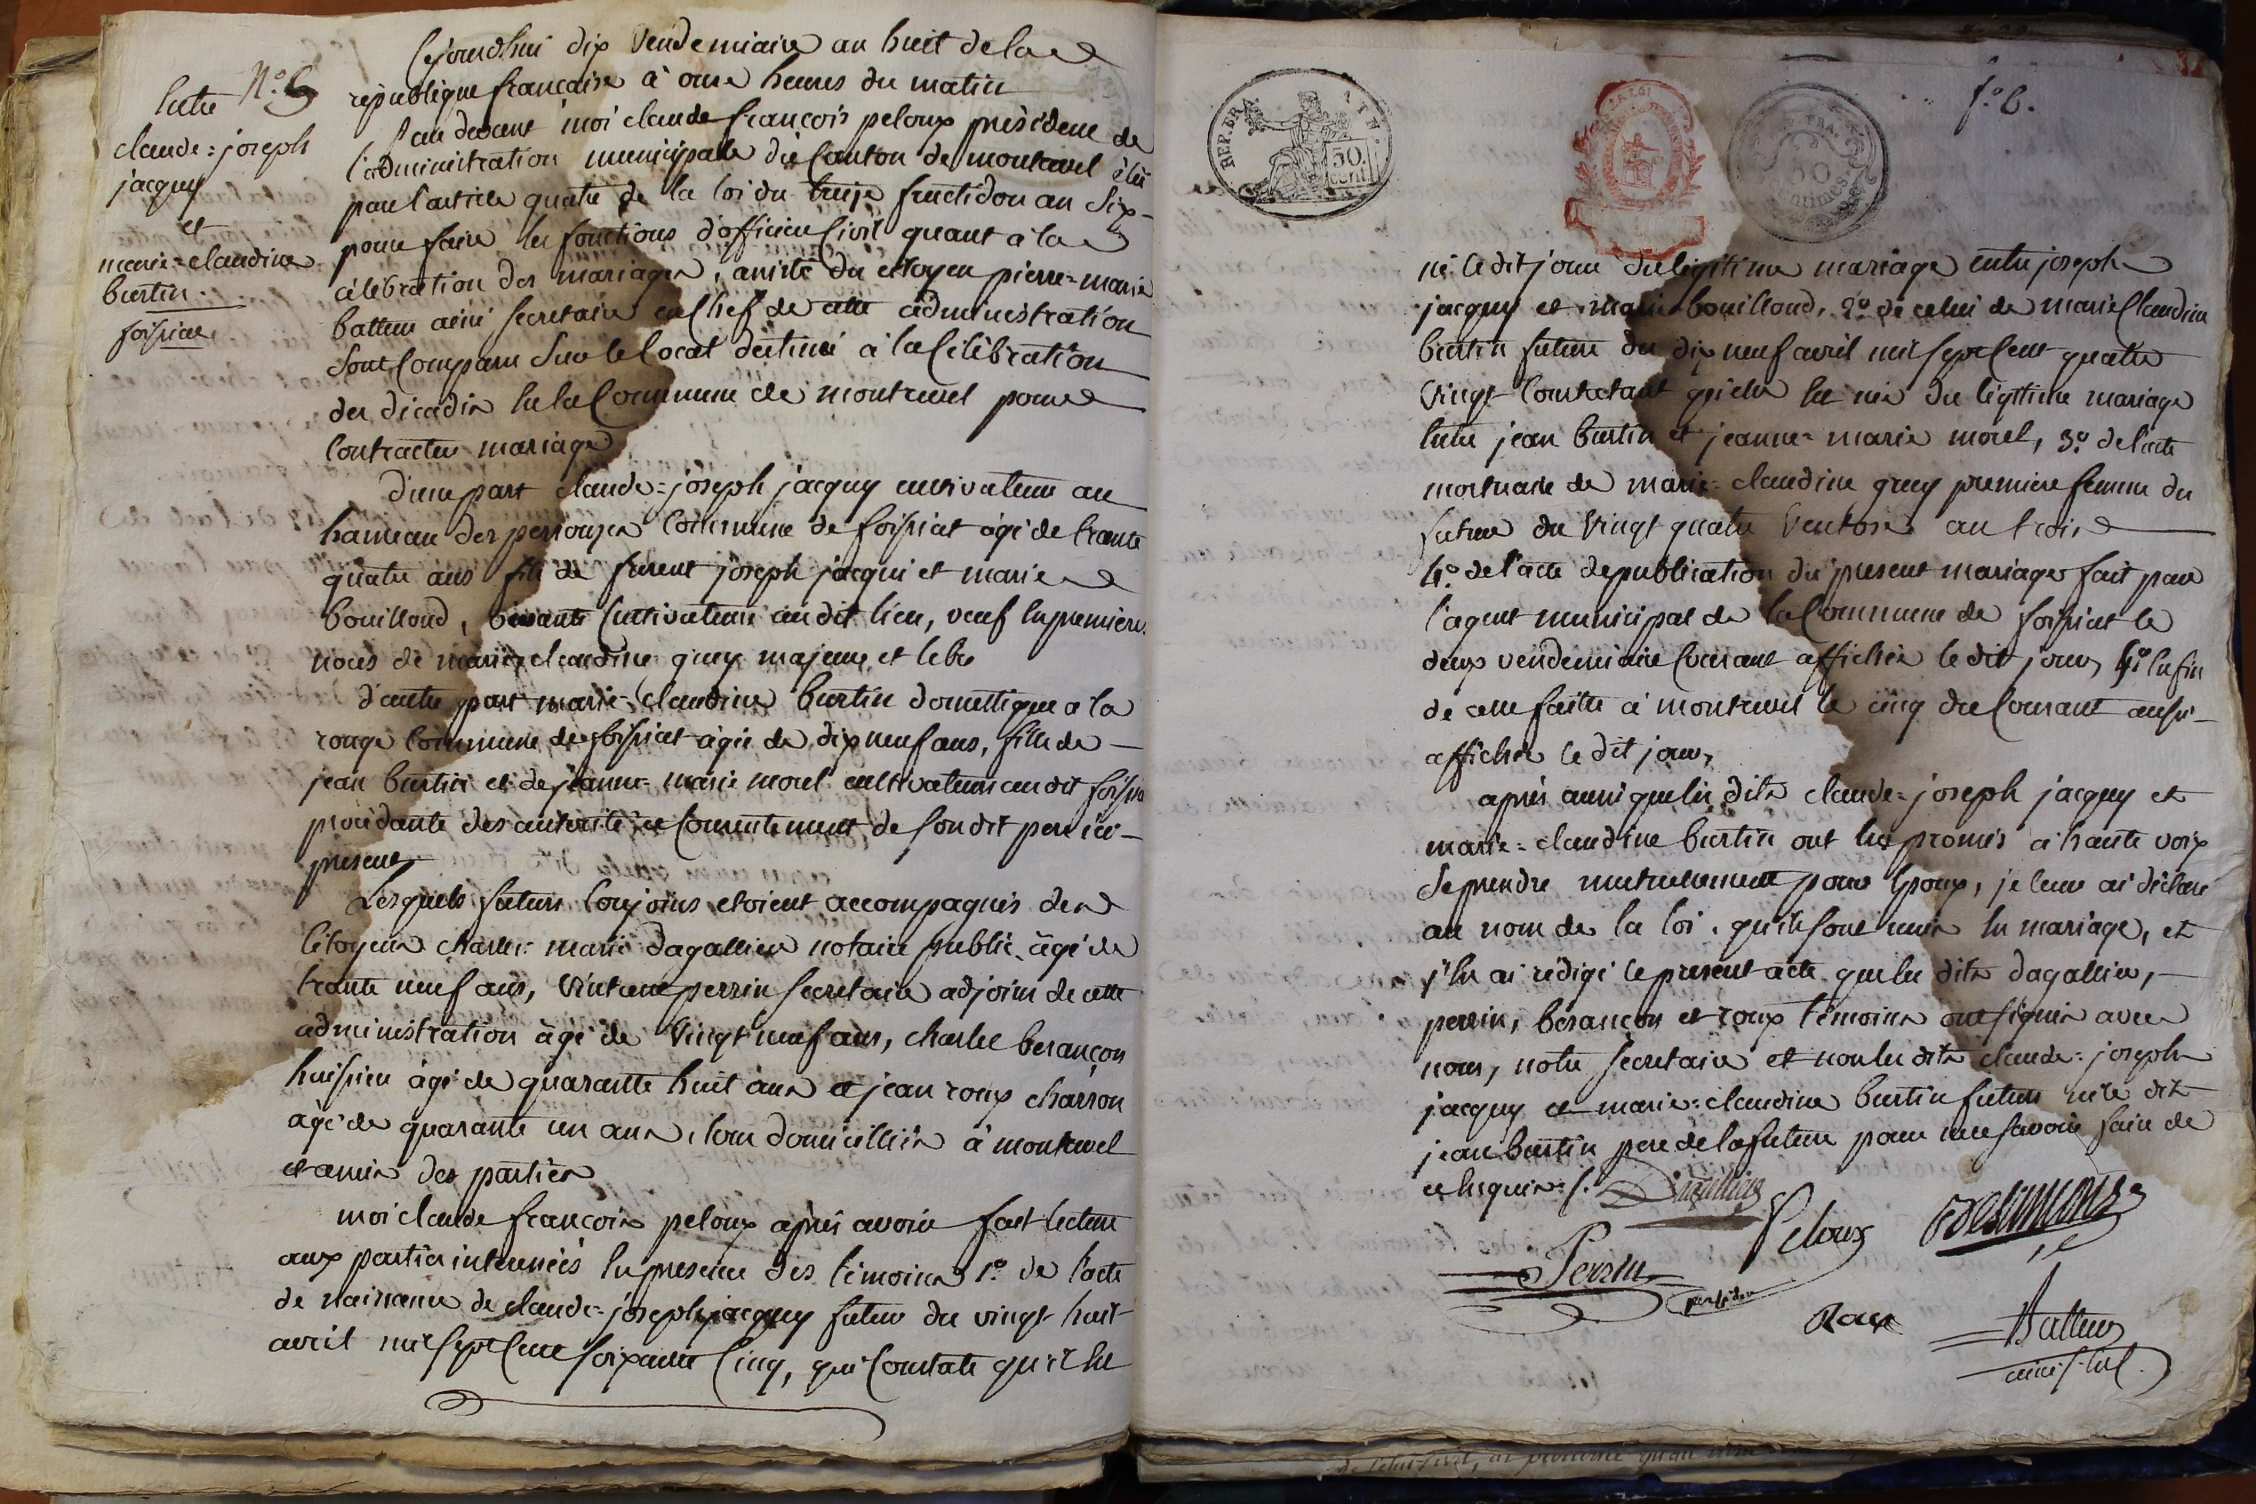 N.º 6
Entre
claude=joseph
jacquy
et
marie=claudine
burtin.
foissiat
Cejourdhui dix Vendemiaire an huit de la
république française à onze heures du matin
Par devant moi claude françois peloux président de
l'administration municipale du Canton de montrevel élu
par l'article quatre de la loi du treize fructidor an Six
pour faire les fonctions d'officier Civil quant à la
célébration des mariages, assisté du citoyen pierre=marie
batteur ainé secretaire en Chef de cette administration
Sont Comparu Sur le local destiné à la Célébration
des décadis en la Commune de montrevel pour
Contracter mariage
d'une part claude=joseph jacquy cultivateur au
hameau des perrouzes Commune de foissiat âgé de trante
quatre ans fils de furent joseph jacqui et marie
bouillond, vivants Cultivateurs au dit lieu, veuf en premiere
noces de marie claudine guey majeur et libre
d'autre part marie=claudine burtin domestique a la
rouge Commune de foissiat âgée de dix neuf ans, fille de
jean burtin et de jeanne=marie morel cultivateurs au dit foissia
procédante des autorité et Consentement de son dit pere ici
présent
Lesquels futurs Conjoins etoient accompagnés des
Citoyens charles=marie dagallier notaire public, âgé de
trante neuf ans, Vintrent perrin secretaire adjoint de cette
administration âgé de Vingt neuf ans, charles besançon
huissier âgé de quarante huit ans et jean roux charron
âgé de quarante un ans, tous domicilliés à montrevel
et amis des parties
moi claude françois peloux après avoir fait lecture
aux parties interessées en presence des témoins 1º. de l'acte
de naissance de claude=joseph jacquy futur du vingt huit
avril mil sept Cent soixante Cinq, qui Constate qu'il est
fº. 6.
REP. FRA.
ATN.
50.
cent.
né le dit jour du légitime mariage entre joseph
jacquy et marie bouillond, 2º. de celui de marie Claudine
burtin future du dix neuf avril mil sept Cent quatre
Vingt Constatant qu'elle est née du légitime mariage
entre jean burtin et jeanne=marie morel, 3º. de l'acte
mortuaire de marie=claudine guey premiere femme du
futur du Vingt quatre Ventose an trois
4º. de l'acte de publication du présent mariage fait par
l'agent municipal de la Commune de foissiat le
deux vendemiaire Courant affichée le dit jour, 5º. enfin
de celle faitte à montrevel le cinq du Courant aussi
affichée le dit jour,
après aussi que les dits claude=joseph jacquy et
marie=claudine burtin ont eu promis à haute voix
de prendre mutuellement pour Epoux, je leur ai déclaré
au nom de la loi, qu'ils sont unis en mariage, et
j'en ai rédigé le présent acte que les dits dagallier,
perrin, besançon et roux témoins ont signés avec
nous, notre secretaire et non les dits claude=joseph
jacquy et marie=claudine burtin futurs ni le dit
jean burtin pere de la future pour ne savoir faire de
ce enquis ./.
Dagallier
Peloux
Besançon
Perrin
president
Roux
Batteur